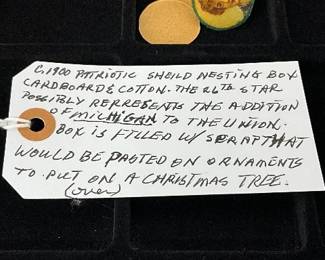 C.1900 PATRIOTIC SHEILD NESTING BOX
CARDBOARD & COTTON. THE 26TH STAR
POSSIBLY REPRESENTS THE ADDITION
OF MICHIGAN TO THE UNION.
BOX IS FILLED W/ SCRAP THAT
WOULD BE PASTED ON ORNAMENTS
TO PUT ON A CHRISTMAS TREE.
(OVER)